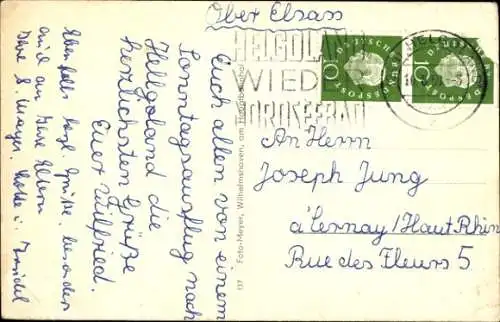 Ober Elsass
HELGOLAND
WIED
NORDSEEBAD
DEUTSCHE BUNDESPOST
10
DEUTSCHE BUNDESPOST
10
HELGOLAND
An Herrn
Joseph Jung
à Cernay/Haut Rhin
Rue des Fleurs 5
Euch allen von einem
Sonntagsausflug nach
Helgoland die
herzlichsten Grüße
Euer Wilfried.
Ebenfalls herzl. Grüße, besonders
auch an Ihre Eltern
Ihre E. Mayer,
137 Foto-Meyer, Wilhelmshaven, am Hauptbahnhof